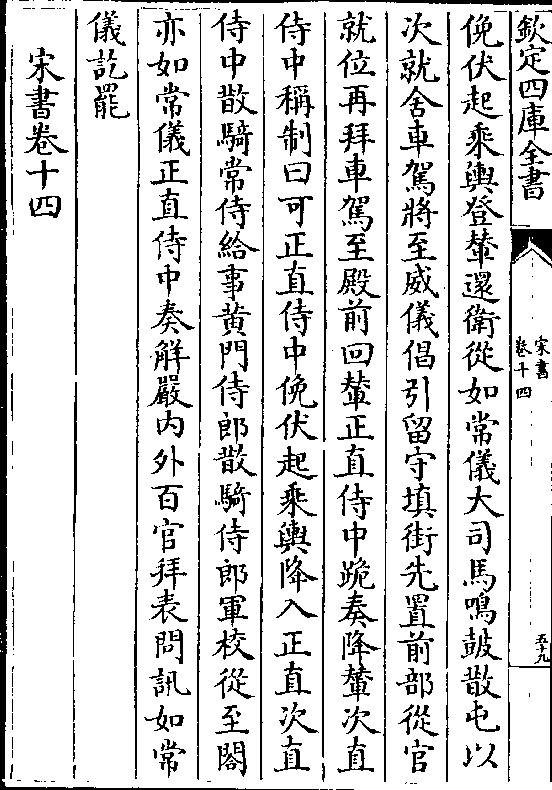 欽定四庫全書
宋書
卷十四
五十九
俛伏起乘輿登輦還衛從如常儀大司馬鳴皷散屯以
次就舍車駕將至威儀倡引留守填街先置前部從官
就位再拜車駕至殿前回輦正直侍中跪奏降輦次直
侍中稱制曰可正直侍中俛伏起乘輿降入正直次直
侍中散騎常侍給事黄門侍郎散騎侍郎軍校從至閣
亦如常儀正直侍中奏解嚴内外百官拜表問訊如常
儀訖罷
宋書卷十四